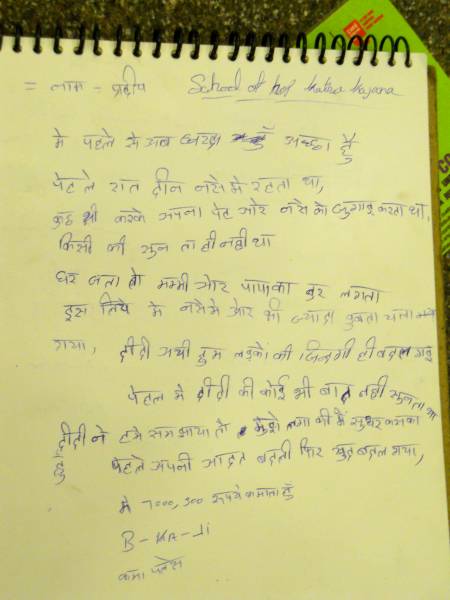 = नाम - प्रदीप School of Hope
मे पहले से अब अच्छा हुँ
पेहले रात दीन नसे मे रहता था,
कुछ भी करके अपना पेट ओर नसे का जुगाड़ करता था,
किसी की सुन ता ही नही था
घर जाता तो मम्मी ओर पापा का बुर लगता
इस लिये मे नसे मे ओर भी ज्यादा डुबता चला
गया, दीदी अयी हम लड़को की जिन्दगी ही बदल गइ
पेहल मे दीदी की कोई भी बात नही सुनता था
दीदी ने हमे समझाया तो मुझे लगा की मैं सुधर सकता
हुँ पेहले अपनी आदत बदली फिर खुद बदल गया,
मे 1000, 500 रूपये कमाता हुँ
B-KA-Ji
कमा पलेस